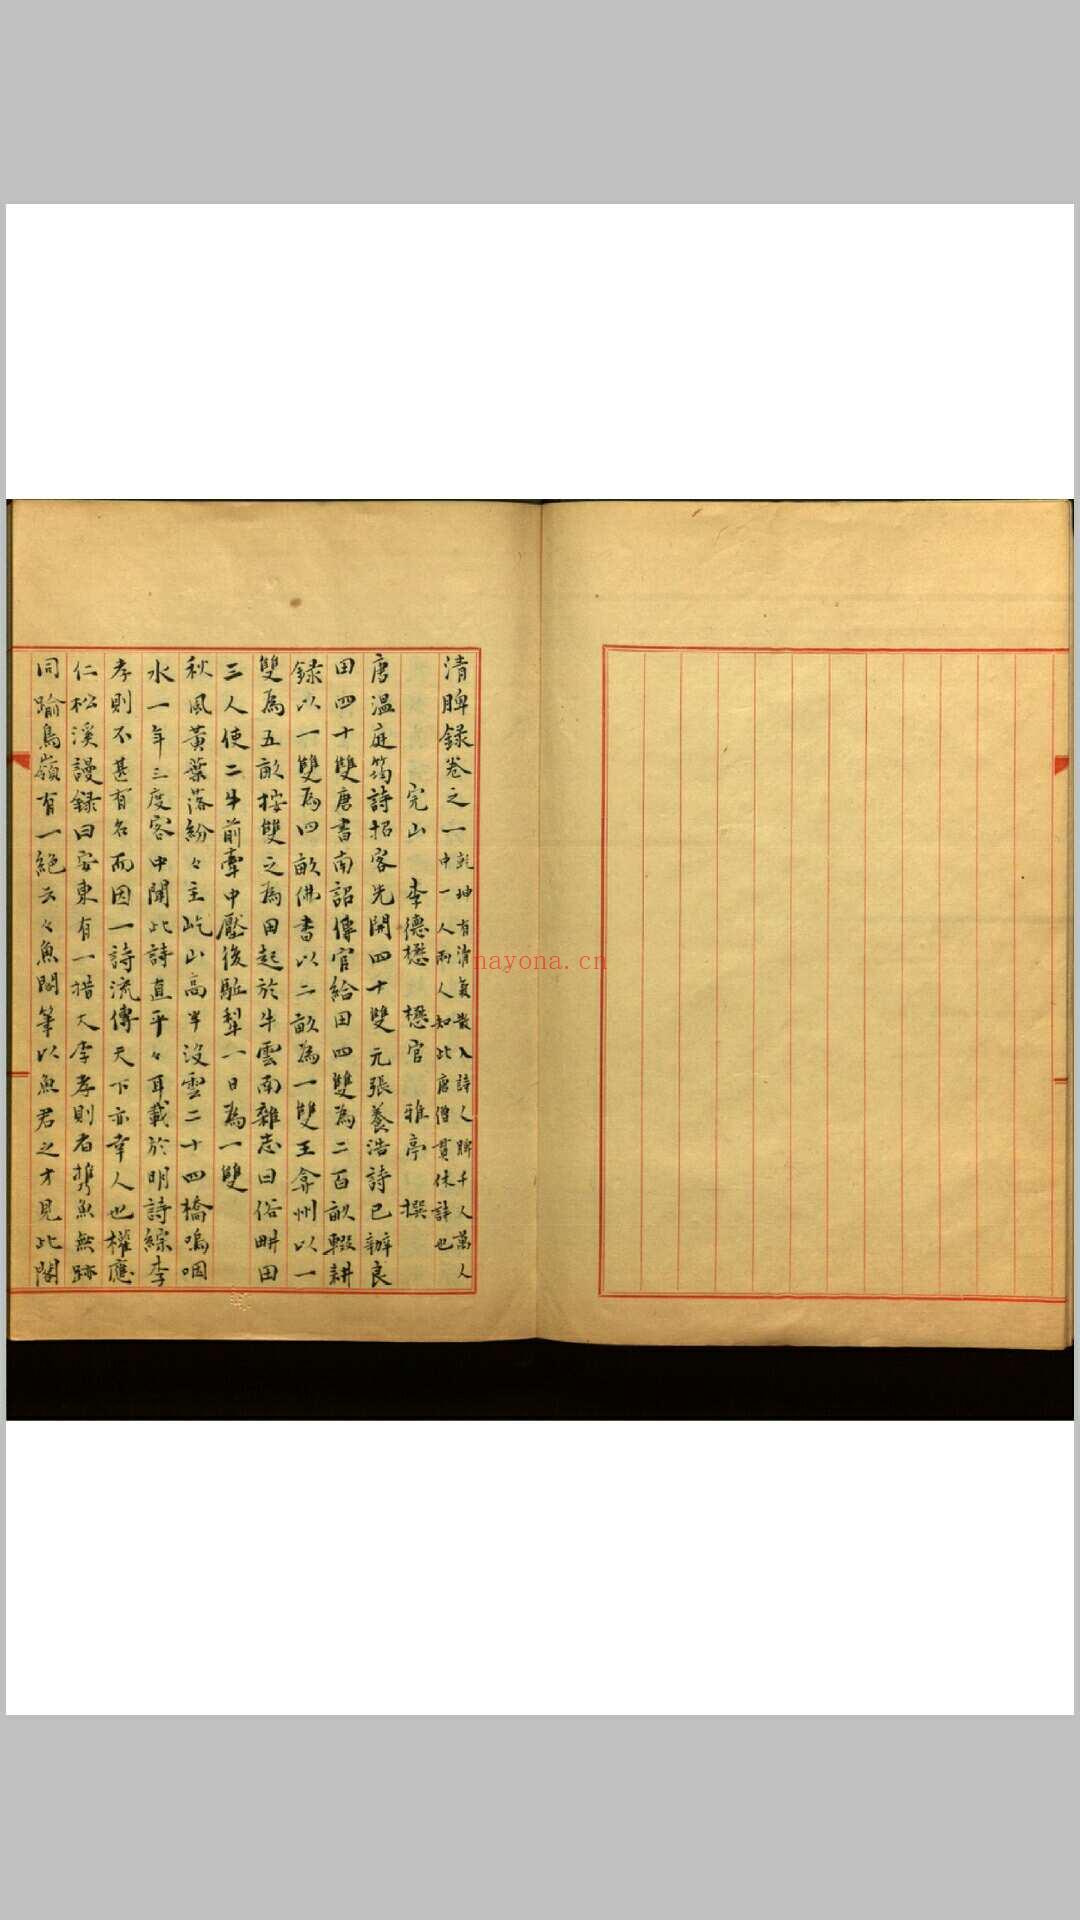 清脾錄卷之一 乾坤有清氣散入詩人脾千人萬人
中一人兩人知此唐僧貫休詩也
完山 李德懋 懋官 雅亭 撰
唐温庭筠詩招客先開四十雙元張養浩詩已辦良
田四十雙唐書南詔傳官給田四雙為二百畝輟耕
錄以一雙為四畝佛書以二畝為一雙王弇州以一
雙為五畝按雙之為田起於牛雲南雜志曰俗畊田
三人使二牛前牽中壓後駈犁一日為一雙
秋風黃葉落紛々主屹山高半沒雲二十四橋嗚咽
水一年三度客中聞此詩直平々耳載於明詩綜李
孝則不甚有名而因一詩流傳天下亦幸人也權應
仁松溪謾錄曰安東有一措大李孝則者携魚無跡
同踰鳥嶺有一絕云々魚閣筆以魚君之才見此閣
nayona.cn